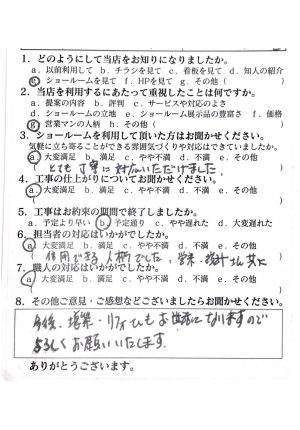 1. どのようにして当店をお知りになりましたか。
a. 以前利用して b. チラシを見て c. 看板を見て d. 知人の紹介
e. ショールームを見て f. HPを見て g. その他( )
2. 当店を利用するにあたって重視したことは何ですか。
a. 提案の内容 b. 評判 c. サービスや対応のよさ
d. ショールームの立地 e. ショールーム展示品の豊富さ f. 価格
g. 営業マンの人柄 h. その他( )
3. ショールームを利用して頂いた方はお聞かせください。
気軽に立ち寄ることができる雰囲気づくりや対応はできていましたか。
a. 大変満足 b. 満足 c. やや不満 d. 不満 e. その他
( とても丁寧に対応いただけました。 )
4. 工事の仕上がりについてお聞かせください。
a. 大変満足 b. 満足 c. やや不満 d. 不満 e. その他
( )
5. 工事はお約束の期間で終了しましたか。
a. 予定より早い b. 予定通り c. やや遅れた d. 大変遅れた
6. 担当者の対応はいかがでしたか。
a. 大変満足 b. 満足 c. やや不満 d. 不満 e. その他
( 信用できる人柄でした。営業・設計さん共に )
7. 職人の対応はいかがでしたか。
a. 大変満足 b. 満足 c. やや不満 d. 不満 e. その他
( )
8. その他ご意見・ご感想などございましたらお聞かせください。
今後、増築・リフォームもお世話になりますので
よろしくお願いいたします。
ありがとうございます。